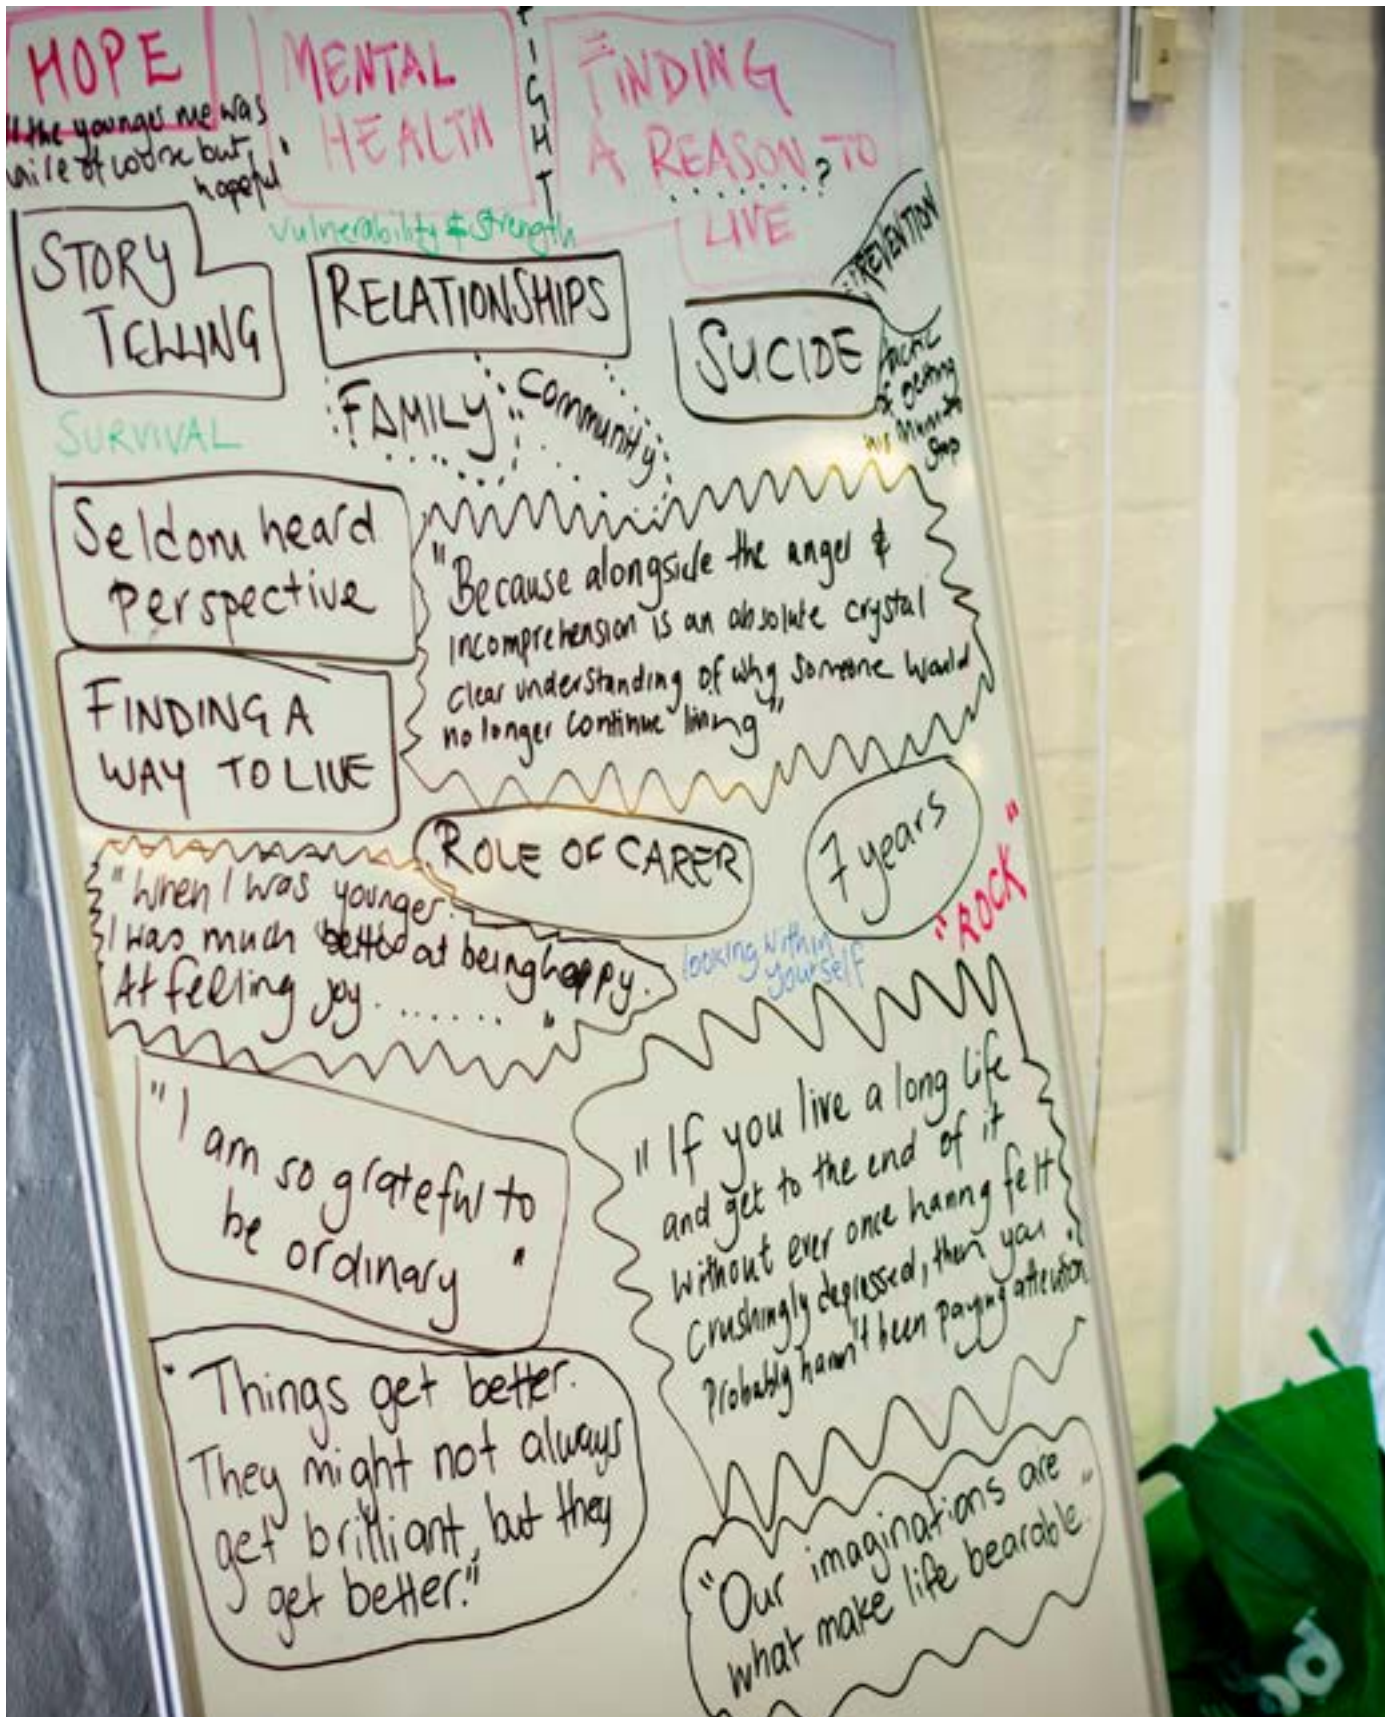 HOPE
"the younger me was
naive of course but
hopeful"
MENTAL
HEALTH
FIGHT
FINDING
A REASON TO
LIVE
?
vulnerability & strength
STORY
TELLING
RELATIONSHIPS
FAMILY
Community
PREVENTION
SUCIDE
tactic
of getting
his Mum to
Stop
SURVIVAL
Seldom heard
Perspective
"Because alongside the anger &
incomprehension is an absolute crystal
clear understanding of why someone would
no longer continue living"
FINDING A
WAY TO LIVE
ROLE OF CARER
7 years
"ROCK"
"When I was younger
I was much better at being happy.
At feeling joy ....... "
looking within
yourself
"I
am so grateful to
be ordinary "
"If you live a long life
and get to the end of it
without ever once having felt
crushingly depressed, then you
Probably haven't been paying attention"
"Things get better.
They might not always
get brilliant, but they
get better."
"Our imaginations are
what make life bearable."